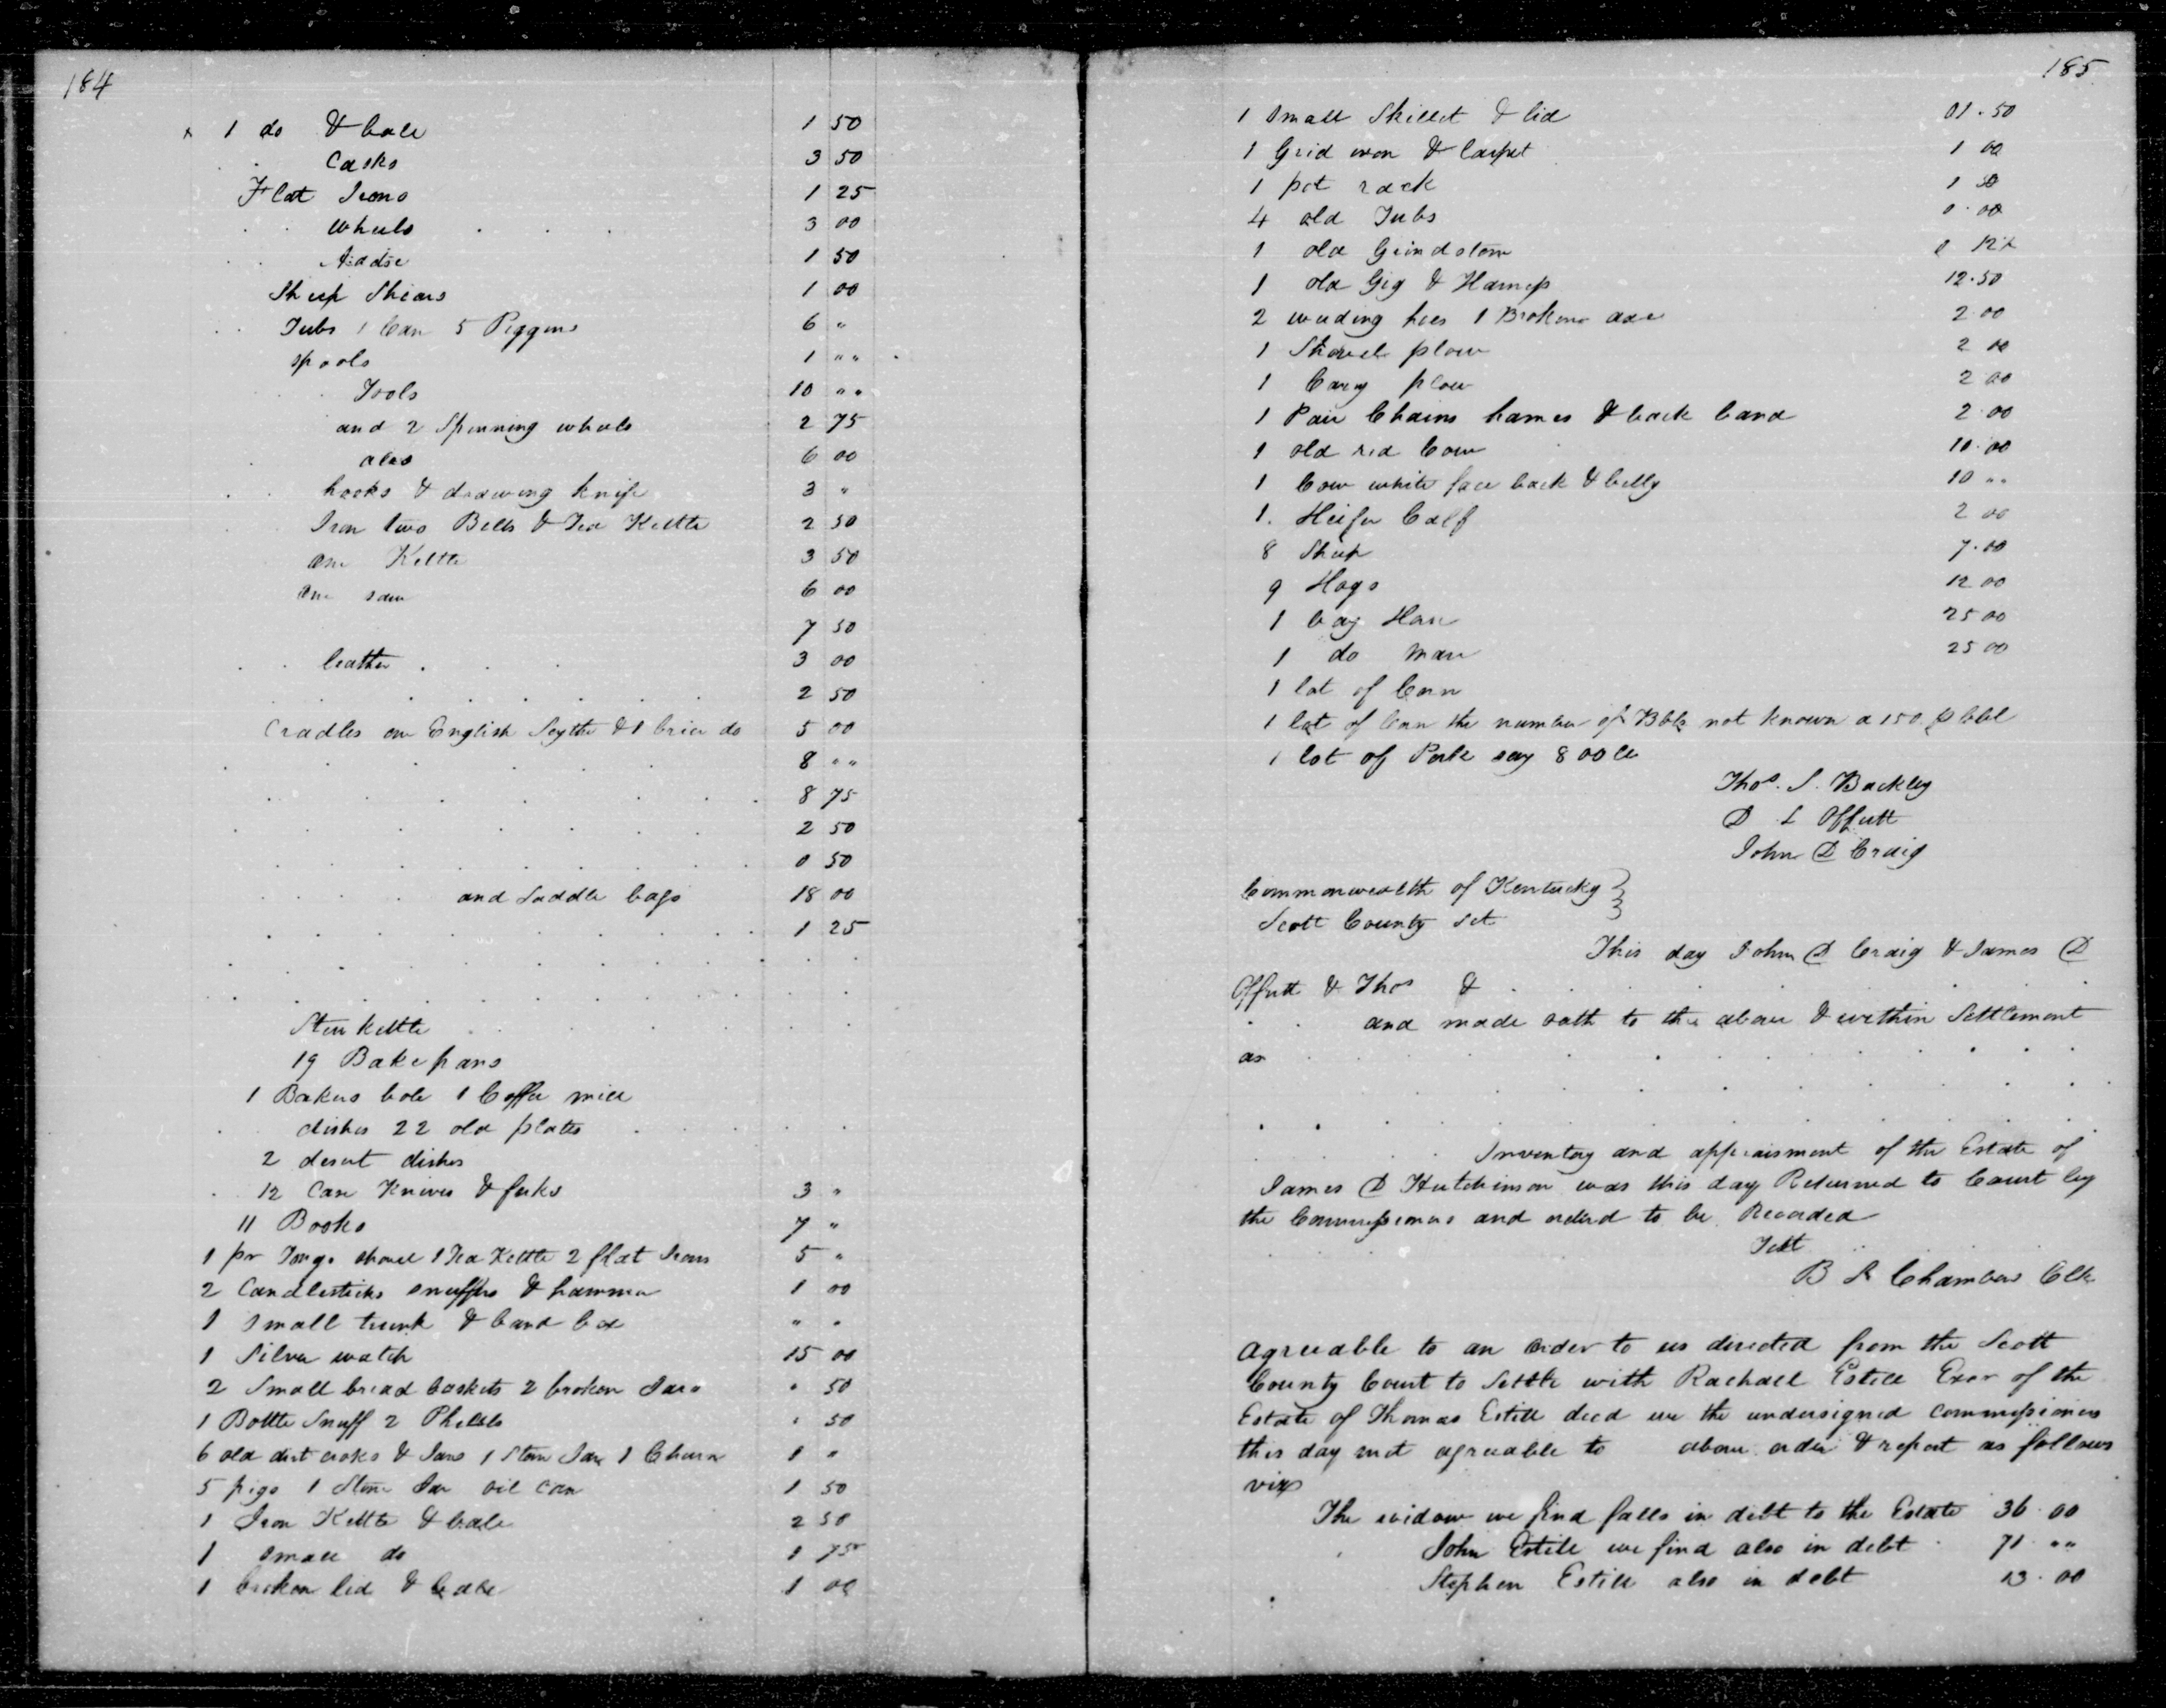 184
x 1 do & bale 1 50
Casks 3 50
Flat Irons 1 25
wheels 3 00
Addse 1 50
Sheep Shears 1 00
Tubs 1 Can 5 Piggins 6 "
spools 1 " "
Tools 10 " "
and 2 Spinning wheels 2 75
ales 6 00
hooks & drawing knife 3 "
Iron two Bells & Tea Kettle 2 50
one Kettle 3 50
one saw 6 00
7 50
leather 3 00
2 50
Cradles one English Scythe & 1 brier do 5 00
8 " "
8 75
2 50
0 50
and Saddle bags 18 00
1 25
Stew kettle
19 Bake pans
1 Bakers bole 1 Coffee mill
dishes 22 old plates
2 desert dishes
12 Case Knives & forks 3 "
11 Books 7 "
1 pr Tongs shovel 1 Tea Kettle 2 flat Irons 5 "
2 Candlesticks snuffers & hammer 1 00
1 Small trunk & band box " "
1 Silver watch 15 00
2 Small bread baskets 2 broken Jars " 50
1 Bottle Snuff 2 50
6 old dirt croks & Jars 1 Stone Jar 1 Churn 1 "
5 pigs 1 Stone Jar oil can 1 50
1 Iron Kettle & bale 2 50
1 small do 1 75
1 broken lid & bale 1 00
185
1 Small Skillet & lid 01.50
1 Grid iron & Carpet 1 00
1 pot rack 1 50
4 old Tubs 0.00
1 old Grindstone 0 12½
1 old Gig & Harness 12.50
2 weeding hoes 1 Broken axe 2.00
1 Shovel plow 2 00
1 Cary plow 2.00
1 Pair Chains hames & back band 2.00
1 old red Cow 10.00
1 Cow white face back & belly 10 " "
1. Heifer Calf 2 00
8 Sheep 7.00
9 Hogs 12 00
1 bay Horse 25 00
1 do Mare 25 00
1 lot of Corn
1 lot of Corn the number of Bbls not known a 150 p bbl
1 lot of Pork say 800 lb
Thos. S. Barkley
D L Offutt
John D Craig
Commonwealth of Kentucky }
Scott County Sct
This day John D Craig & James D
Offutt & Thos &
and made oath to the above & within Settlement
as
Inventory and appraisment of the Estate of
James D Hutchinson was this day Returned to Court by
the Commissioners and orderd to be Recorded
Test
B S Chambers Clk
Agreeable to an order to us directed from the Scott
County Court to Settle with Rachall Estill Exor of the
Estate of Thomas Estill decd we the undersigned commissioners
this day met agreeable to above order & report as follows
viz
The widow we find falls in debt to the Estate 36.00
John Estill we find also in debt 71 " "
Stephen Estill also in debt 13.00